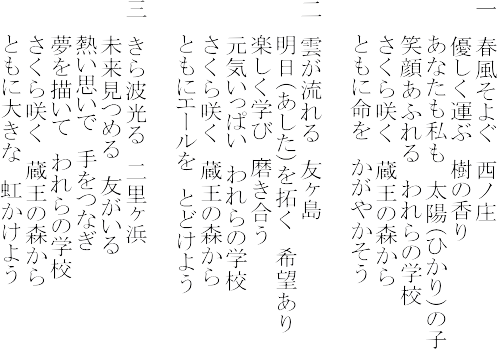 一 春風そよぐ 西ノ庄
優しく運ぶ 樹の香り
あなたも私も 太陽(ひかり)の子
笑顔あふれる われらの学校
さくら咲く 蔵王の森から
ともに命を かがやかそう
二 雲が流れる 友ヶ島
明日(あした)を拓く 希望あり
楽しく学び 磨き合う
元気いっぱい われらの学校
さくら咲く 蔵王の森から
ともにエールを とどけよう
三 きら波光る 二里ヶ浜
未来見つめる 友がいる
熱い思いで 手をつなぎ
夢を描いて われらの学校
さくら咲く 蔵王の森から
ともに大きな 虹かけよう